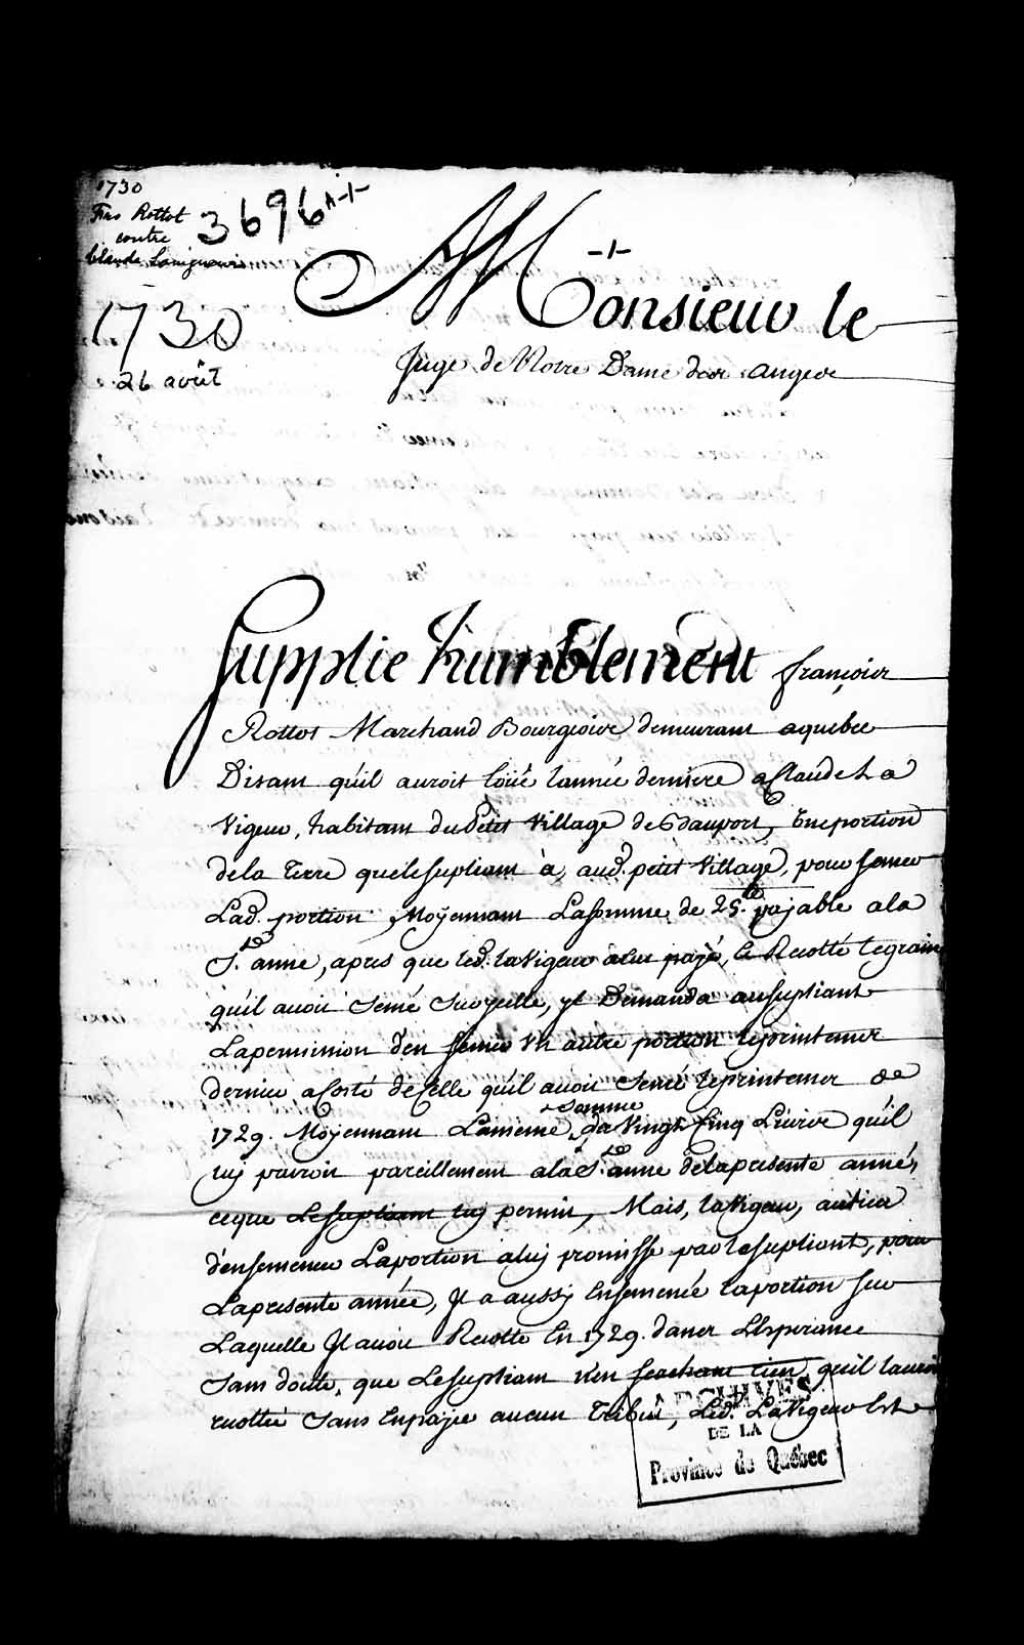 1730
Frs Rottot
contre
Claude Lavigueur
3696
1730
26 août
-1-
Monsieur le
Juge de Notre Dame des anges
Supplie humblement françois
Rottot Marchand Bourgeois demeurant a quebec
Disant qu'il auroit loüé lannée derniere a Claude La
Vigeur, habitant du Petit Village de Bauport, Une portion
de la Terre que le supliant à aud. petit Village, pour semer
Lad. portion Moÿennant La somme de 25.lt payable a la
Ste. anne, apres que led. la Vigeur a lui payé, & Recolté le grain
qu'il avoit Semé Sur ycelle, yl Demanda au supliant
La permission d'en semer Un autre portion le printemes
dernier a Costé de Celle qu'il avoit Semé le printemes de
1729. Moÿennant La meme somme de Vingt Cinq Livres qu'il
luy payroit pareillement a la Ste. anne de la presente année,
ce que Le supliant luy permit, Mais, la Vigeur, au lieu
d'ensemencer La portion a luy promisse par le supliant, pour
La presente année, Il a aussy Ensemencé la portion sur
Laquelle Il avoit Recolté En 1729. dans L'Esperance
Sans doute, que Le supliant n'en seachant rien, quil lauroit
recoltée Sans En payer aucun Tribut, Led. La Vigeur Est
ARCHIVES
DE LA
Province de Québec